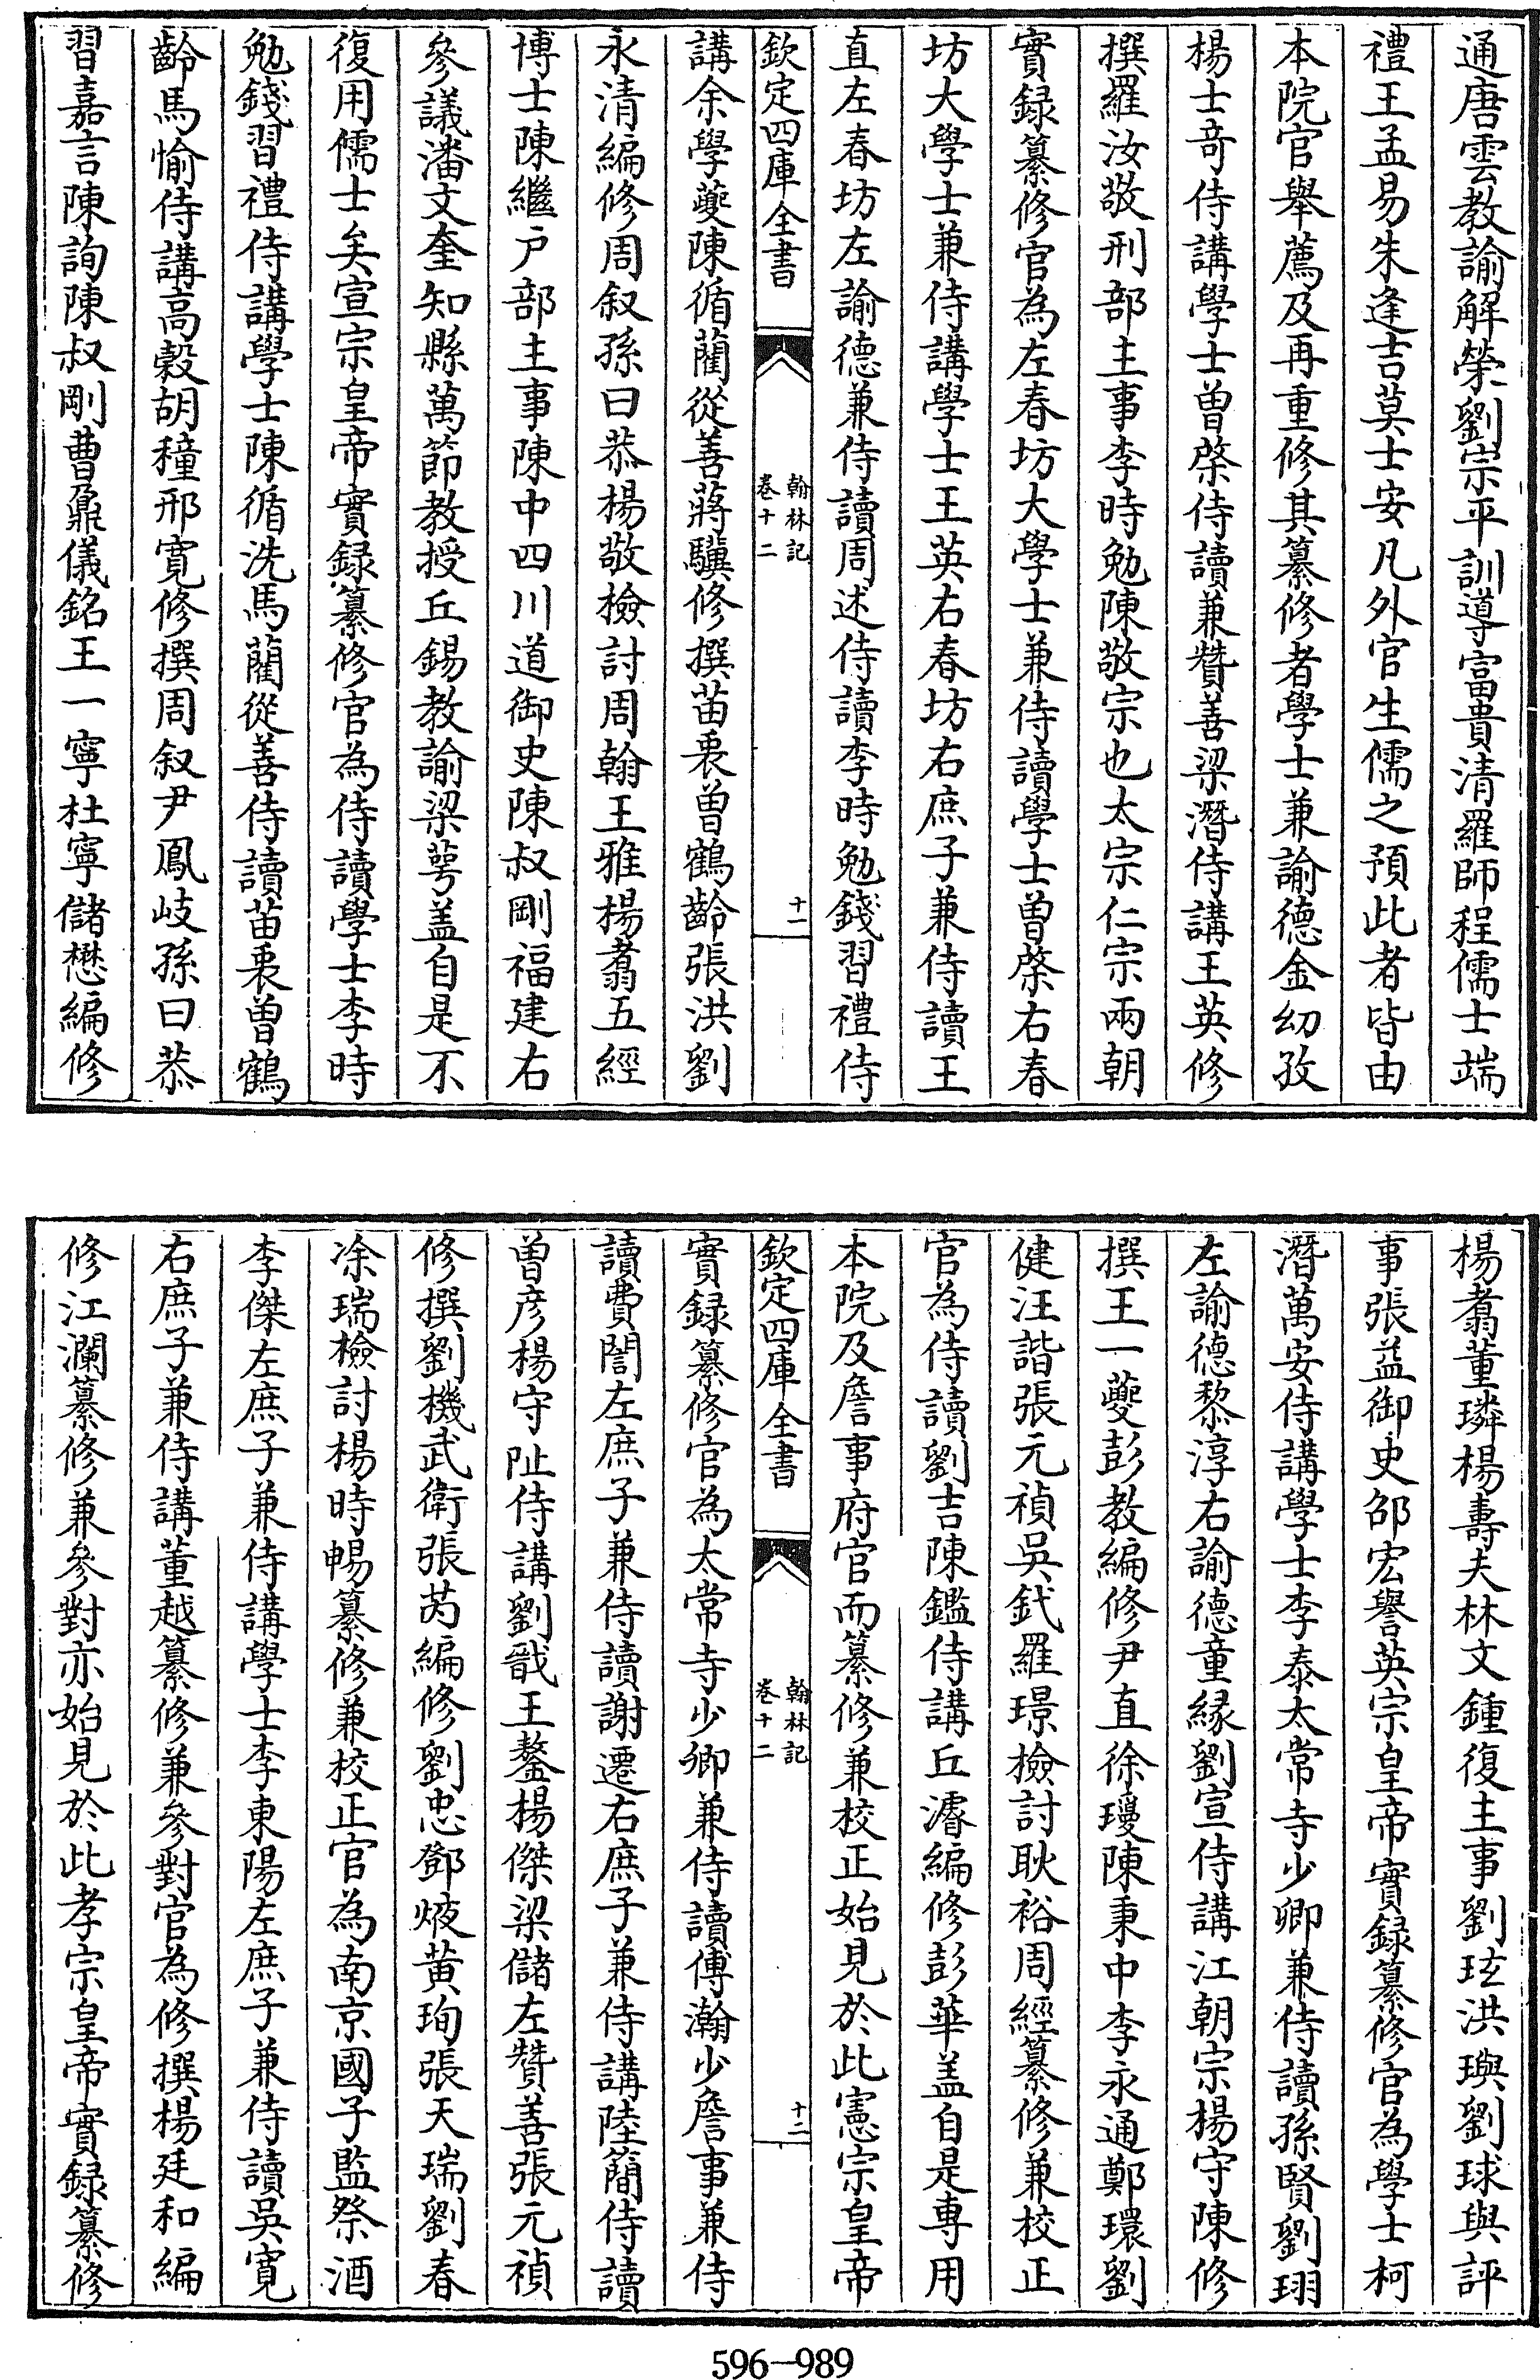 通唐雲教諭解榮劉宗平訓導富貴清羅師程儒士端
禮王孟易朱逢吉莫士安凡外官生儒之預此者皆由
本院官舉薦及再重修其纂修者學士兼諭德金幼孜
楊士奇侍講學士曾棨侍讀兼贊善梁潛侍講王英修
撰羅汝敬刑部主事李時勉陳敬宗也太宗仁宗兩朝
實録纂修官為左春坊大學士兼侍讀學士曾棨右春
坊大學士兼侍講學士王英右春坊右庶子兼侍讀王
直左春坊左諭德兼侍讀周述侍讀李時勉錢習禮侍
欽定四庫全書
翰林記
卷十二
十一
講余學夔陳循藺從善蔣驥修撰苗衷曾鶴齡張洪劉
永清編修周叙孫曰恭楊敬檢討周翰王雅楊翥五經
博士陳繼户部主事陳中四川道御史陳叔剛福建右
參議潘文奎知縣萬節教授丘錫教諭梁萼盖自是不
復用儒士矣宣宗皇帝實録纂修官為侍讀學士李時
勉錢習禮侍講學士陳循洗馬藺從善侍讀苗衷曾鶴
齡馬愉侍講高榖胡穜邢寛修撰周叙尹鳳岐孫曰恭
習嘉言陳詢陳叔剛曹鼐儀銘王一寧杜寧儲懋編修
楊翥董璘楊壽夫林文鍾復主事劉玹洪璵劉球與評
事張益御史邵宏譽英宗皇帝實録纂修官為學士柯
潛萬安侍講學士李泰太常寺少卿兼侍讀孫賢劉珝
左諭德黎淳右諭德童緣劉宣侍講江朝宗楊守陳修
撰王一夔彭教編修尹直徐瓊陳秉中李永通鄭環劉
健汪諧張元禎吳釴羅璟檢討耿裕周經纂修兼校正
官為侍讀劉吉陳鑑侍講丘濬編修彭華盖自是專用
本院及詹事府官而纂修兼校正始見於此憲宗皇帝
欽定四庫全書
翰林記
卷十二
十二
實録纂修官為太常寺少卿兼侍讀傅瀚少詹事兼侍
讀費誾左庶子兼侍讀謝遷右庶子兼侍講陸簡侍讀
曾彦楊守阯侍講劉戩王鏊楊傑梁儲左贊善張元禎
修撰劉機武衛張芮編修劉忠鄧焲黃珣張天瑞劉春
凃瑞檢討楊時暢纂修兼校正官為南京國子監祭酒
李傑左庶子兼侍講學士李東陽左庶子兼侍讀吳寛
右庶子兼侍講董越纂修兼參對官為修撰楊廷和編
修江瀾纂修兼參對亦始見於此孝宗皇帝實録纂修
596—989